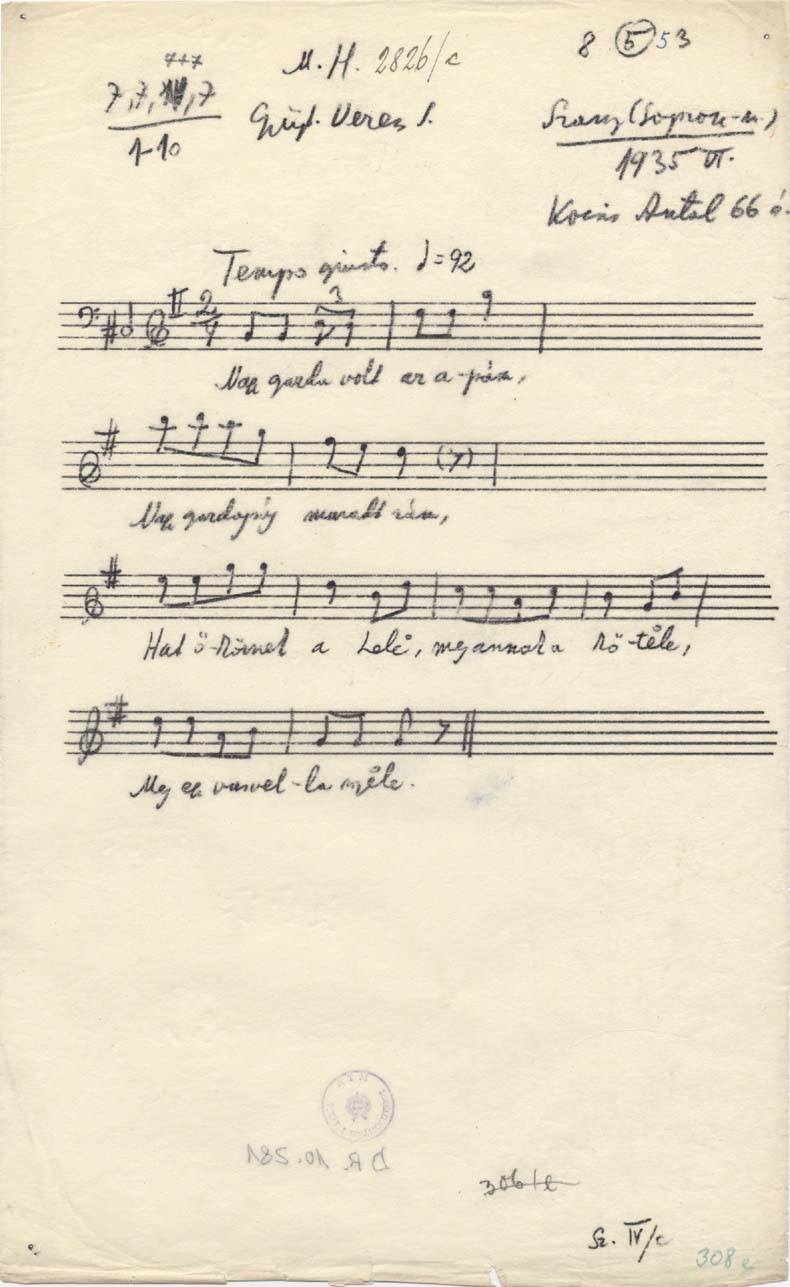 8 5 53
7+7
M. H. 2826/c
7, 7, , 7
1-10
Gyűjt. Veress S.
Szany (Sopron-m.)
1935 VI.
Kocsis Antal 66 é.
Tempo giusto. = 92
II 2/4 3
Nagy gazda volt az a-pám,
Nagy gazdaság maradt rám,
Hat ö-körnek a
meg annak a kö-tele,
Meg egy vasvel-la nyele.
D.R. 10.581
306/e
Sz. IV/c
308 e